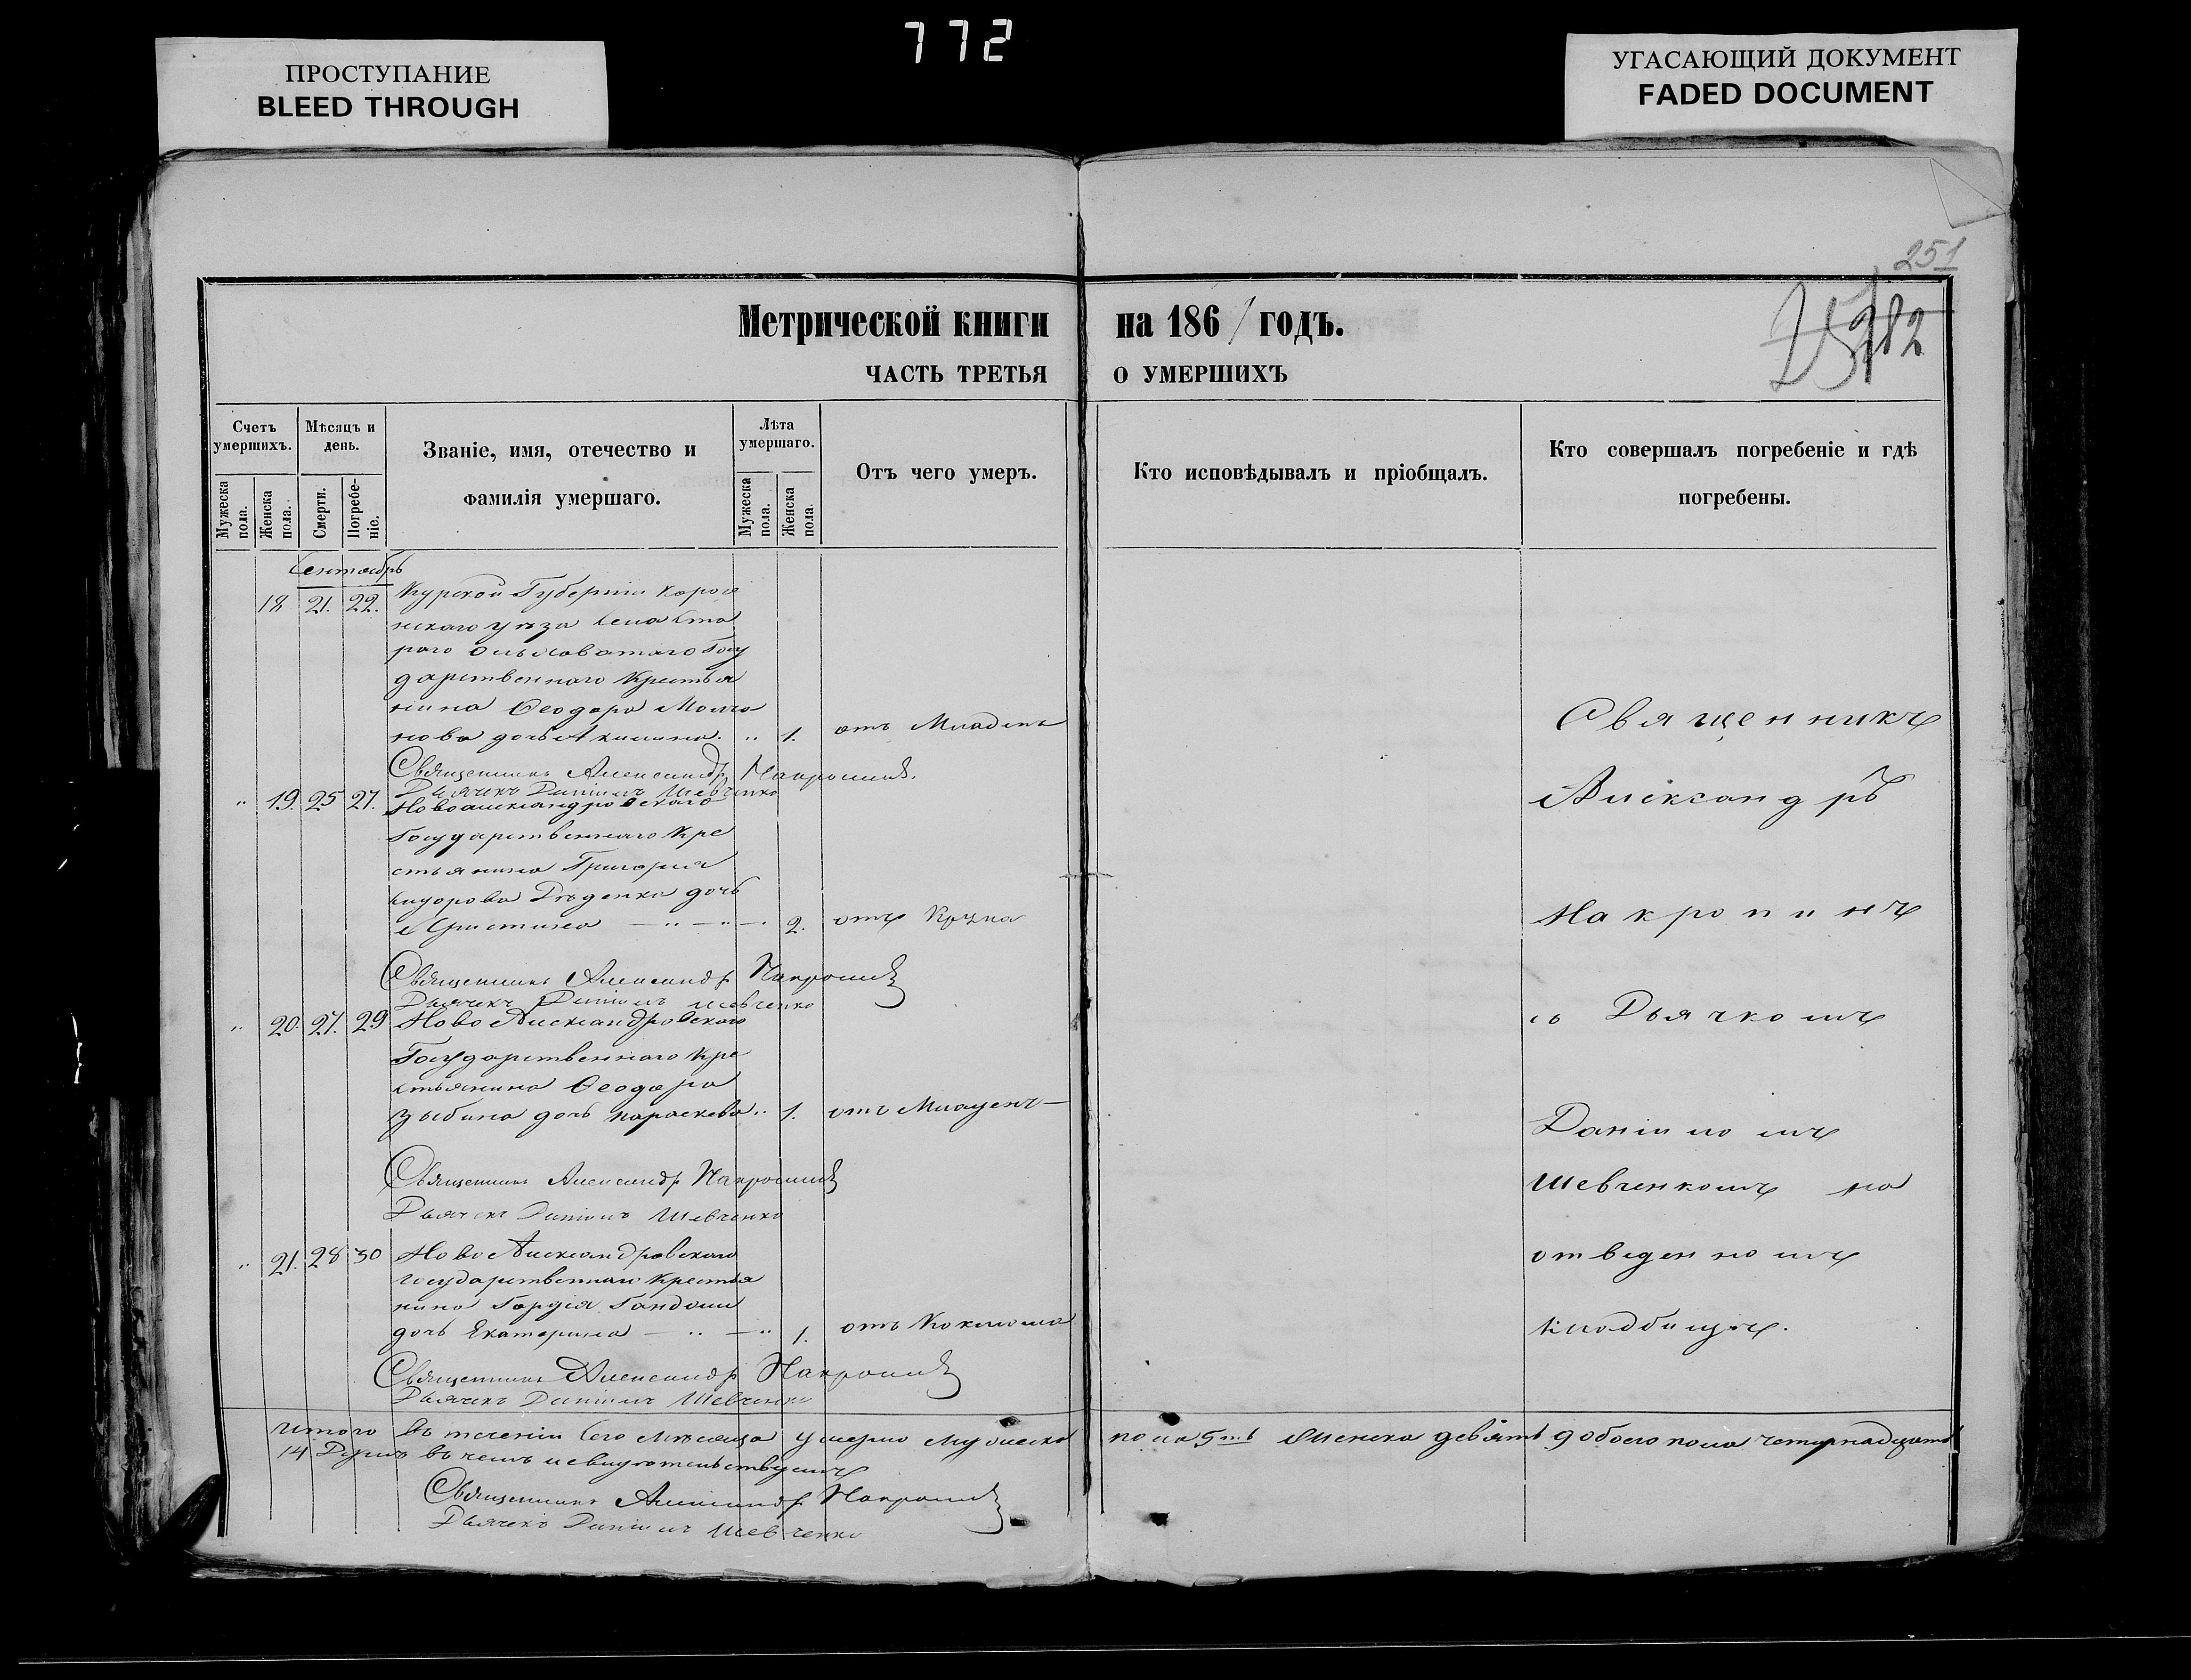 772
ПРОСТУПАНИЕ
BLEED THROUGH
УГАСАЮЩИЙ ДОКУМЕНТ
FADED DOCUMENT
251
282
Метрической книги на 1861 годъ.
ЧАСТЬ ТРЕТЬЯ О УМЕРШИХЪ
Счетъ умершихъ.
Мужеска пола.
Женска пола.
Мѣсяцъ и день.
Смерти.
Погребе-ніе.
Званіе, имя, отечество и
фамилія умершаго.
Лѣта умершаго.
Мужеска пола.
Женска пола.
Отъ чего умеръ.
Кто исповѣдывалъ и пріобщалъ.
Кто совершалъ погребеніе и гдѣ
погребены.
Сентябрь
18 21. 22. Курской Губерніи Короч
нскаго уѣзда Села Ста
раго Госу
дарственнаго Крестья
нина Ѳеодора
дочь Акилина. " 1. отъ Младен
Священникъ Александръ Накропинъ.
Дьячекъ Даніилъ Шевченко
" 19. 25 27. Новоалександровскаго
Государственнаго Кре
стьянина Григорія
Сидорова Дѣденка дочь
Христина — " — " — 2. отъ
Священникъ Александръ Накропинъ
Дьячекъ Даніилъ Шевченко
" 20. 27. 29 НовоАлександровскаго
Государственнаго Кре
стьянина Ѳеодора
Зыбина дочь Параскева " 1. отъ Младен
Священникъ Александръ Накропинъ
Дьячекъ Даніилъ Шевченко
" 21. 28 30 НовоАлександровскаго
государственнаго Крестья
нина Гордія
дочь Екатерина — " — " 1. отъ Коклюша
Священникъ Александръ Накропинъ
Дьячекъ Даніилъ Шевченко
Священникъ
Александръ
Накропинъ
съ Дьячкомъ
Даніиломъ
Шевченкомъ на
отведенномъ
кладбищѣ.
Итого въ теченіи сего Мѣсяца умерло Мужеска пола 5ть Женска девять 9 обоего пола четырнадцать
14 Душъ въ чемъ и свидѣтельствуемъ
Священникъ Александръ Накропинъ
Дьячекъ Даніилъ Шевченко